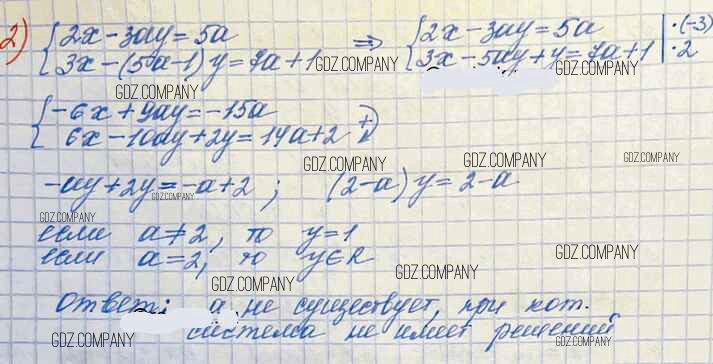 2) { 2x-3ay=5a => { 2x-3ay=5a | ·(-3)
{ 3x-(5a-1)y=7a+1 GDZ.COMPANY { 3x-5ay+y=7a+1 | ·2
GDZ.COMPANY GDZ.COMPANY
{ -6x+9ay=-15a
{ 6x-10ay+2y=14a+2 +
GDZ.COMPANY GDZ.COMPANY GDZ.COMPANY
-ay+2y=-a+2 ; (2-a)y=2-a
GDZ.COMPANY
GDZ.COMPANY
если a≠2, то y=1
если a=2, то y∈R
GDZ.COMPANY
GDZ.COMPANY GDZ.COMPANY
Ответ: a не существует, при кот.
система не имеет решений
GDZ.COMPANY GDZ.COMPANY